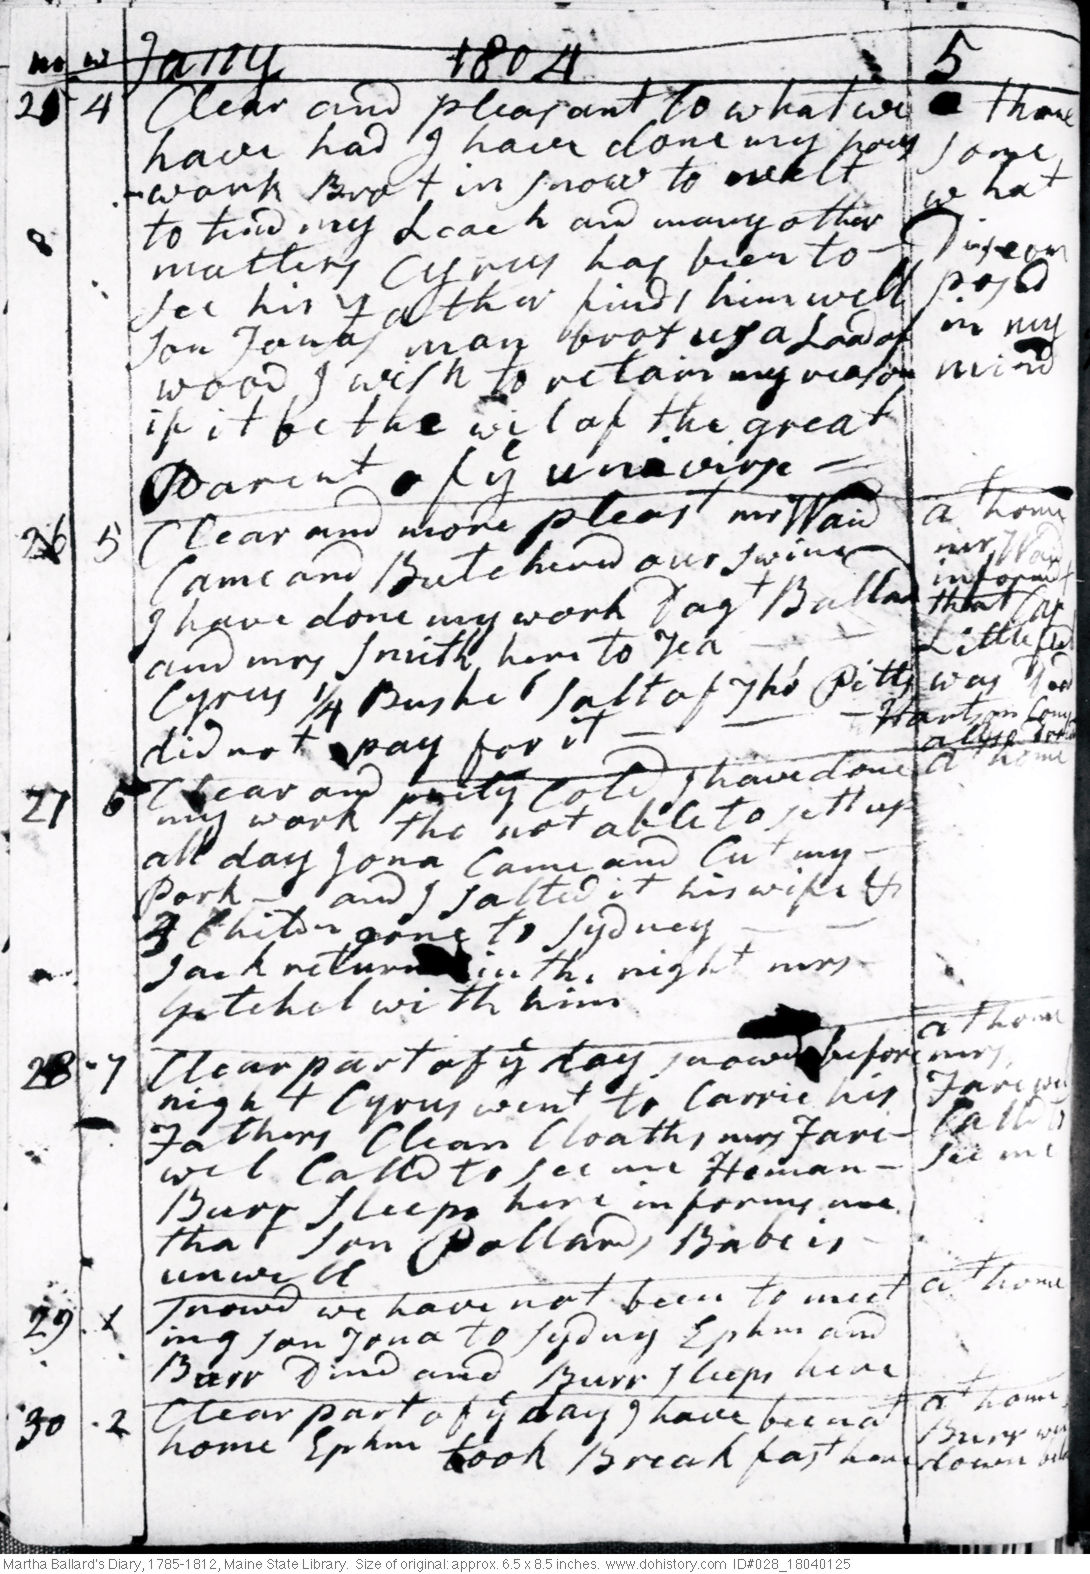 m w Janry 1804 5
25 4 Clear and pleasant to what we
have had I have done my hous
work Brot in snow to melt
to tend my Leach and many other
8
matters Cyrus has been to
see his Father finds him well
son Jonas man brot us a Load of
wood I wish to retain my reason
if it be the wil of the great
Parent of ye univirse
at home
some
what
Discom
posd
in my
mind
26 5 Clear and more pleast mr Waid
Came and Butchered our swine
I have done my work Dagt Ballard
and mrs Smith here to Tea
Cyrus 1/4 Bushel salt of Tho Pitts
did not pay for it
at home
mr Waid
informt
that Cap
Littlefld
was Dead
Hartson Cony
allso
27 6 Clear and prety Cold I have done
my work tho not able to sett up
all day Jona Came and Cut my
Pork and I salted it his wife &
3 Childn gone to Sydney
Jack returnd in the night mrs
Getchel with him
at home
28 7 Clear part of ye day snowd before
night Cyrus went to Carrie his
Fathers Clean Cloaths mrs Fare
wel Calld to see me Heman
Burr sleeps here informs me
that son Pollards Babe is
unwell
at home
mrs
Farewel
Calld to
see me
29 1 Snowd we have not been to meet
ing son Jona to Sydny Ephm and
Burr Dind and Burr sleeps here
at home
30 2 Clear part of ye day I have been at
home Ephm took Breakfast here
at home
Burr
down
Martha Ballard's Diary, 1785-1812, Maine State Library. Size of original: approx. 6.5 x 8.5 inches. www.dohistory.com ID#028_18040125